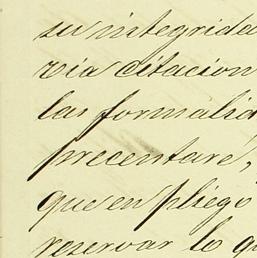 su integrida
via citacion
las formalid
precentaré,
que en pliego
reservar lo q